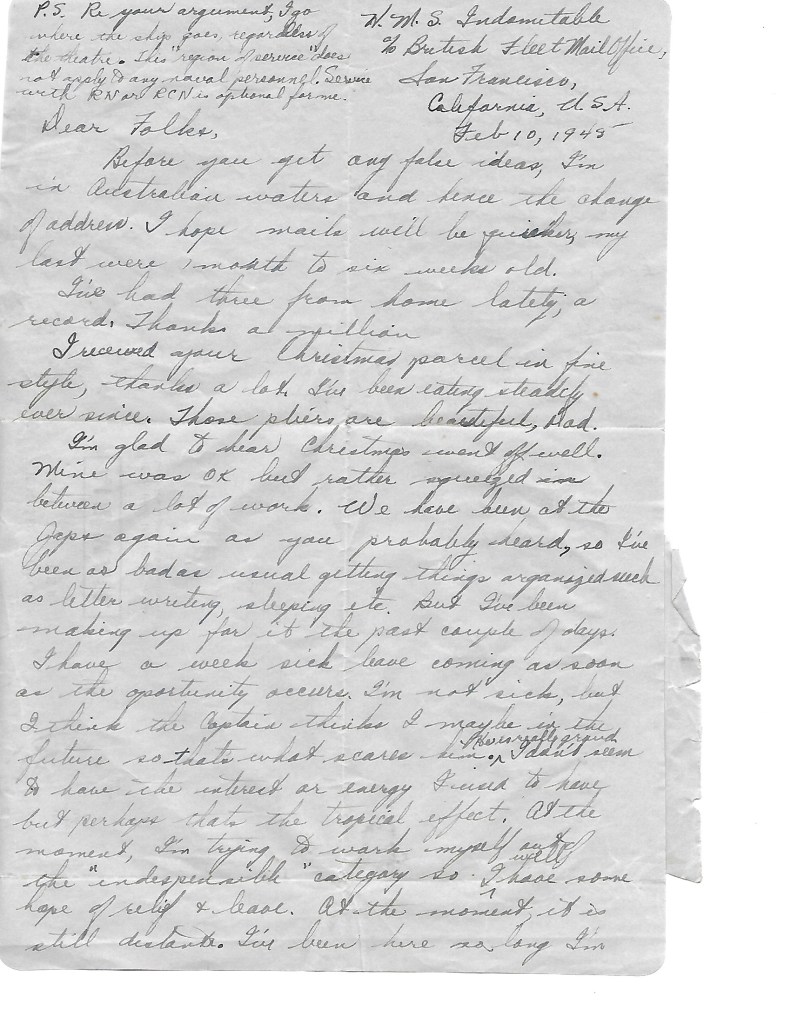 P.S. Re your argument, I go
where the ship goes, regardless of
the theatre. This "region of service" does
not apply to any naval personnel. Service
with RN or RCN is optional for me.
H. M. S. Indomitable
c/o British Fleet Mail Office,
San Francisco,
California, U.S.A.
Feb 10, 1945
Dear Folks,
Before you get any false ideas, I'm
in Australian waters and hence the change
of address. I hope mails will be quicker, my
last were 1 month to six weeks old.
I've had three from home lately, a
record. Thanks a million
I received your Christmas parcel in fine
style, thanks a lot. I've been eating steadily
ever since. Those pliers are beautiful, Dad.
I'm glad to hear Christmas went off well.
Mine was OK but rather squeezed in
between a lot of work. We have been at the
Japs again as you probably heard, so I've
been as bad as usual getting things organized such
as letter writing, sleeping etc. But I've been
making up for it the past couple of days.
I have a week sick leave coming as soon
as the oportunity occurs. I'm not sick, but
I think the Captain thinks I maybe in the
future so thats what scares him. He is really grand. I don't seem
to have the interest or energy I used to have
but perhaps thats the tropical effect. At the
moment, I'm trying to work myself out of
the "indespensible" category so I will have some
hope of relief & leave. At the moment, it is
still distante. I've been here so long I'm